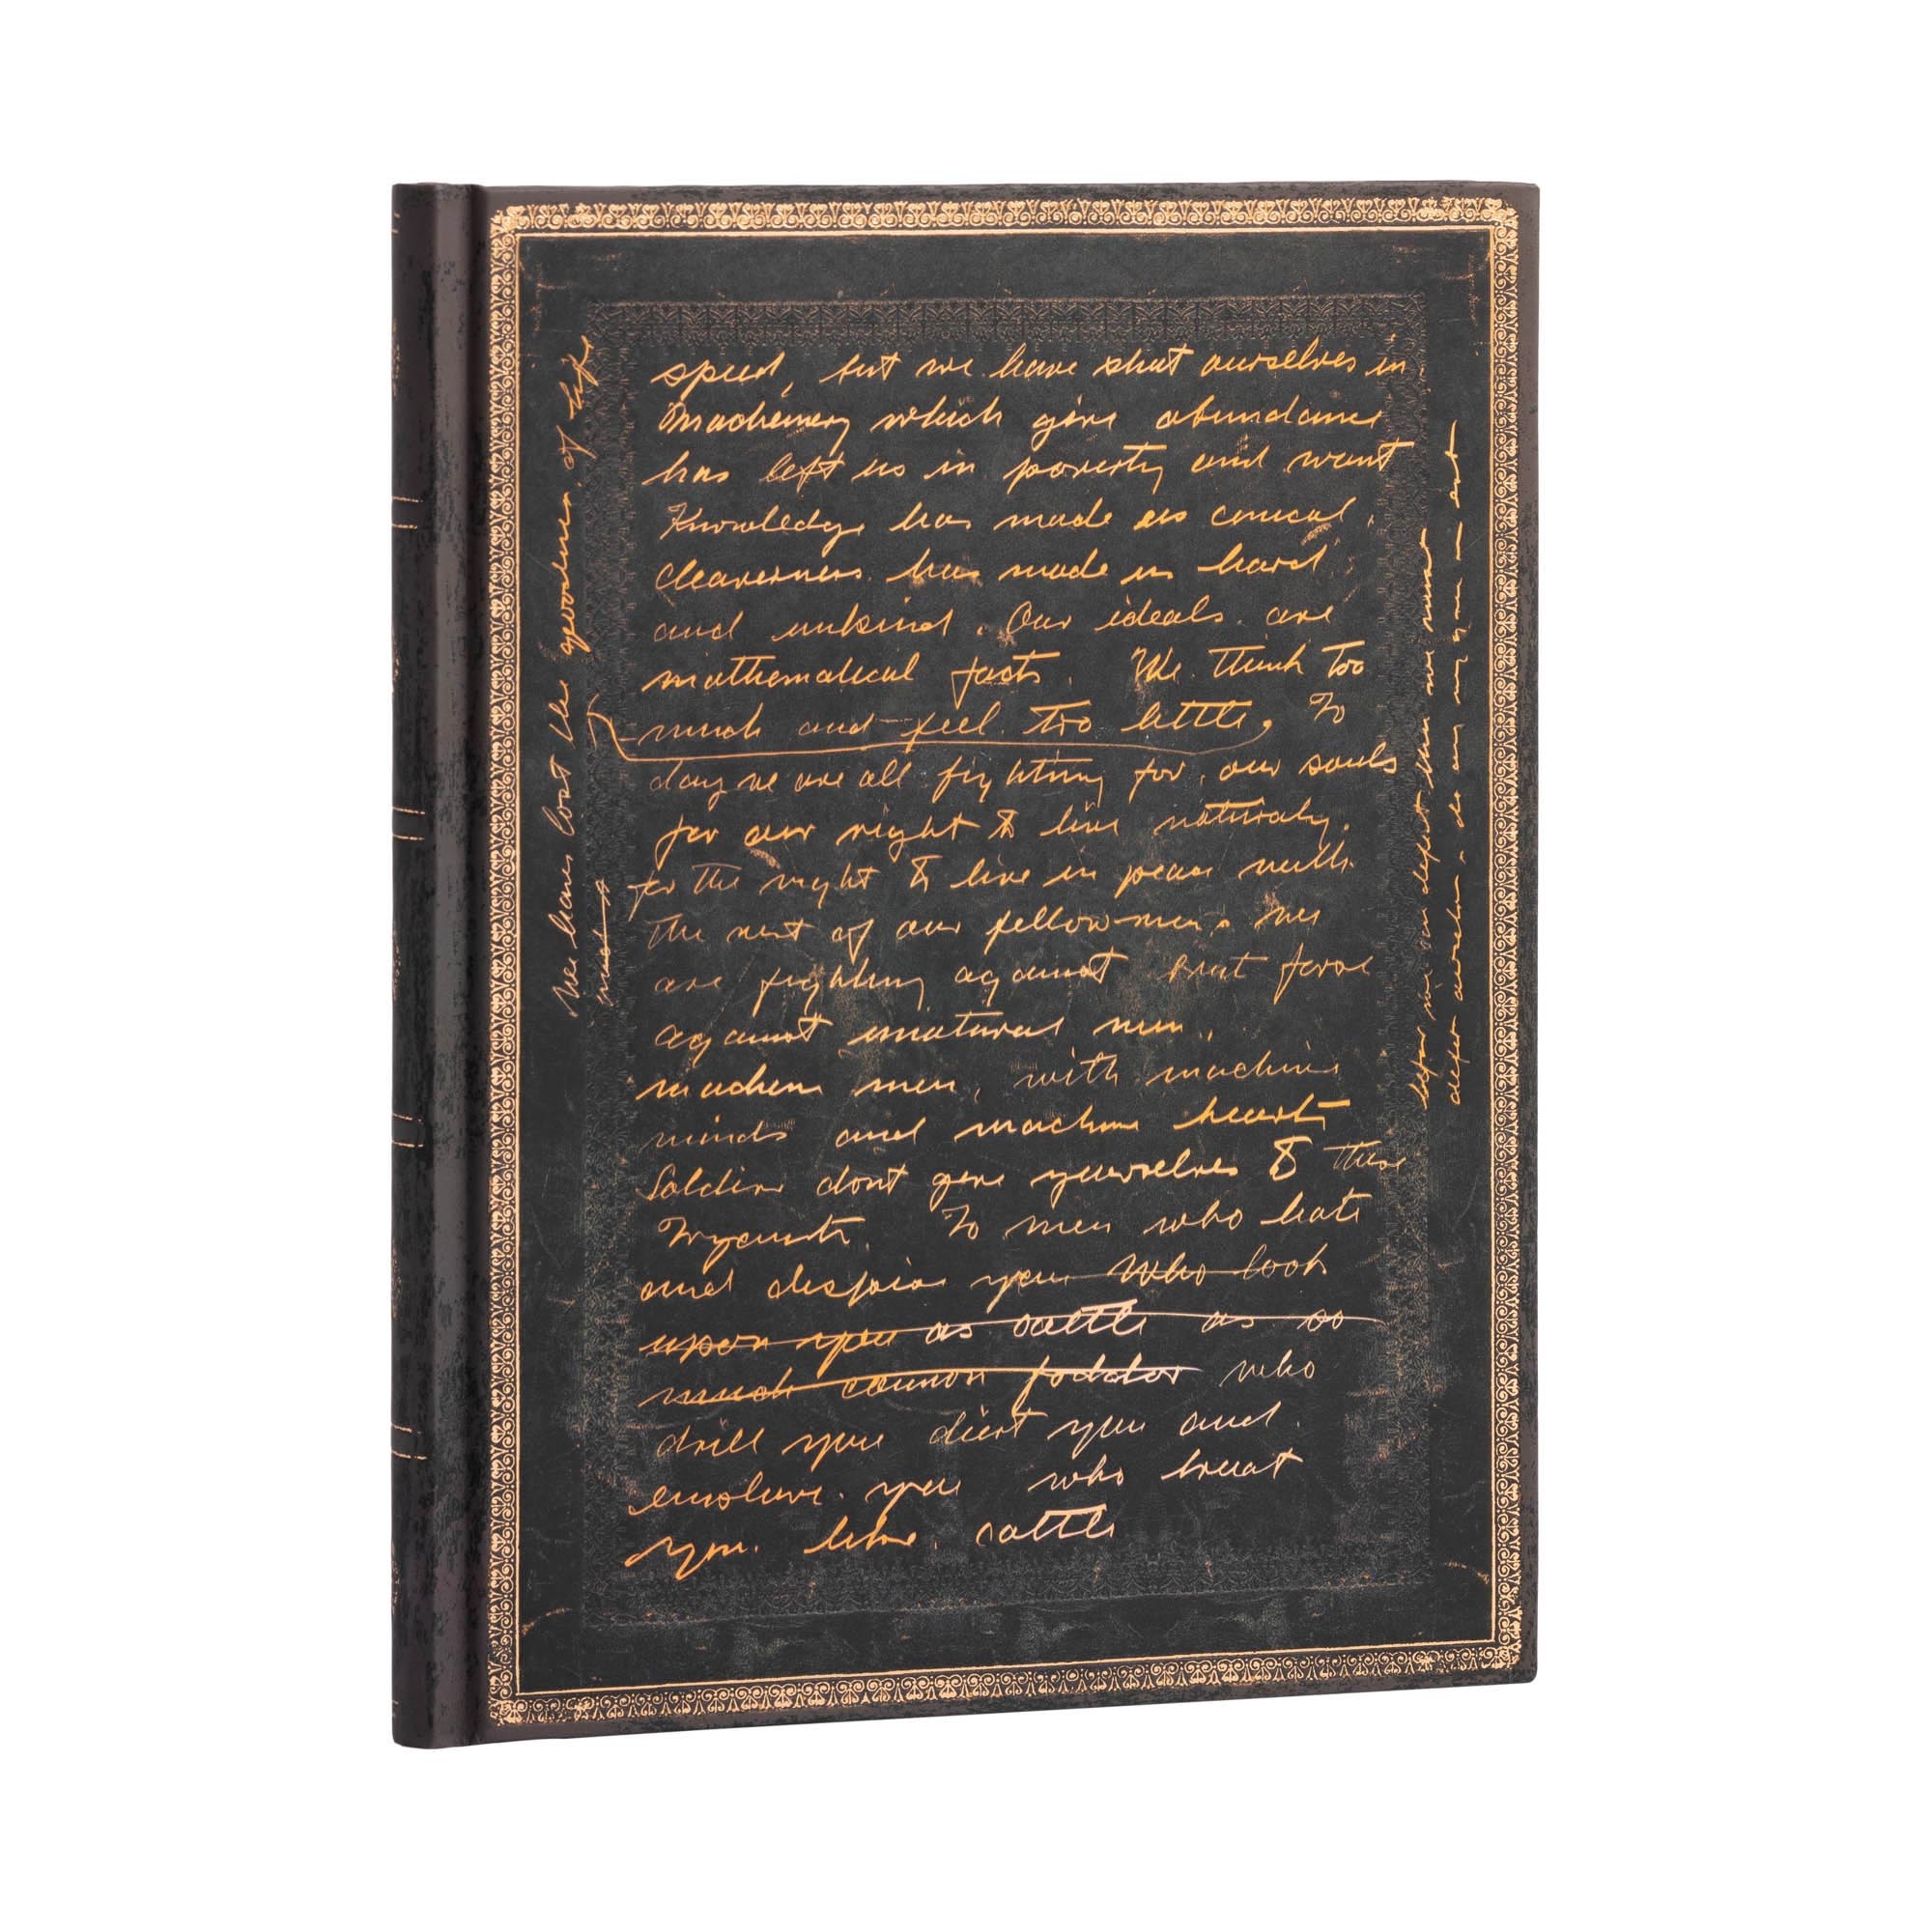 speed, but we have shut ourselves in
Machinery which give abundance
has left us in poverty and want
Knowledge has made us cynical,
cleaverness has made us hard
and unkind. Our ideals are
mathematical facts. We think too
much and feel too little, To
day we are all fighting for, our souls
for our right to live naturaly.
for the right to live in peace with
the rest of our fellow men. We
are fighting against brut force
against unatural men,
machine men, with machine
minds and machine hearts
Soldiers dont give yourselves to these
To men who hate
and despise you who look
upon you as cattle as so
much cannon foddor who
drill you diert you and
enslave you who treat
you like cattle
We have lost the goodness of life